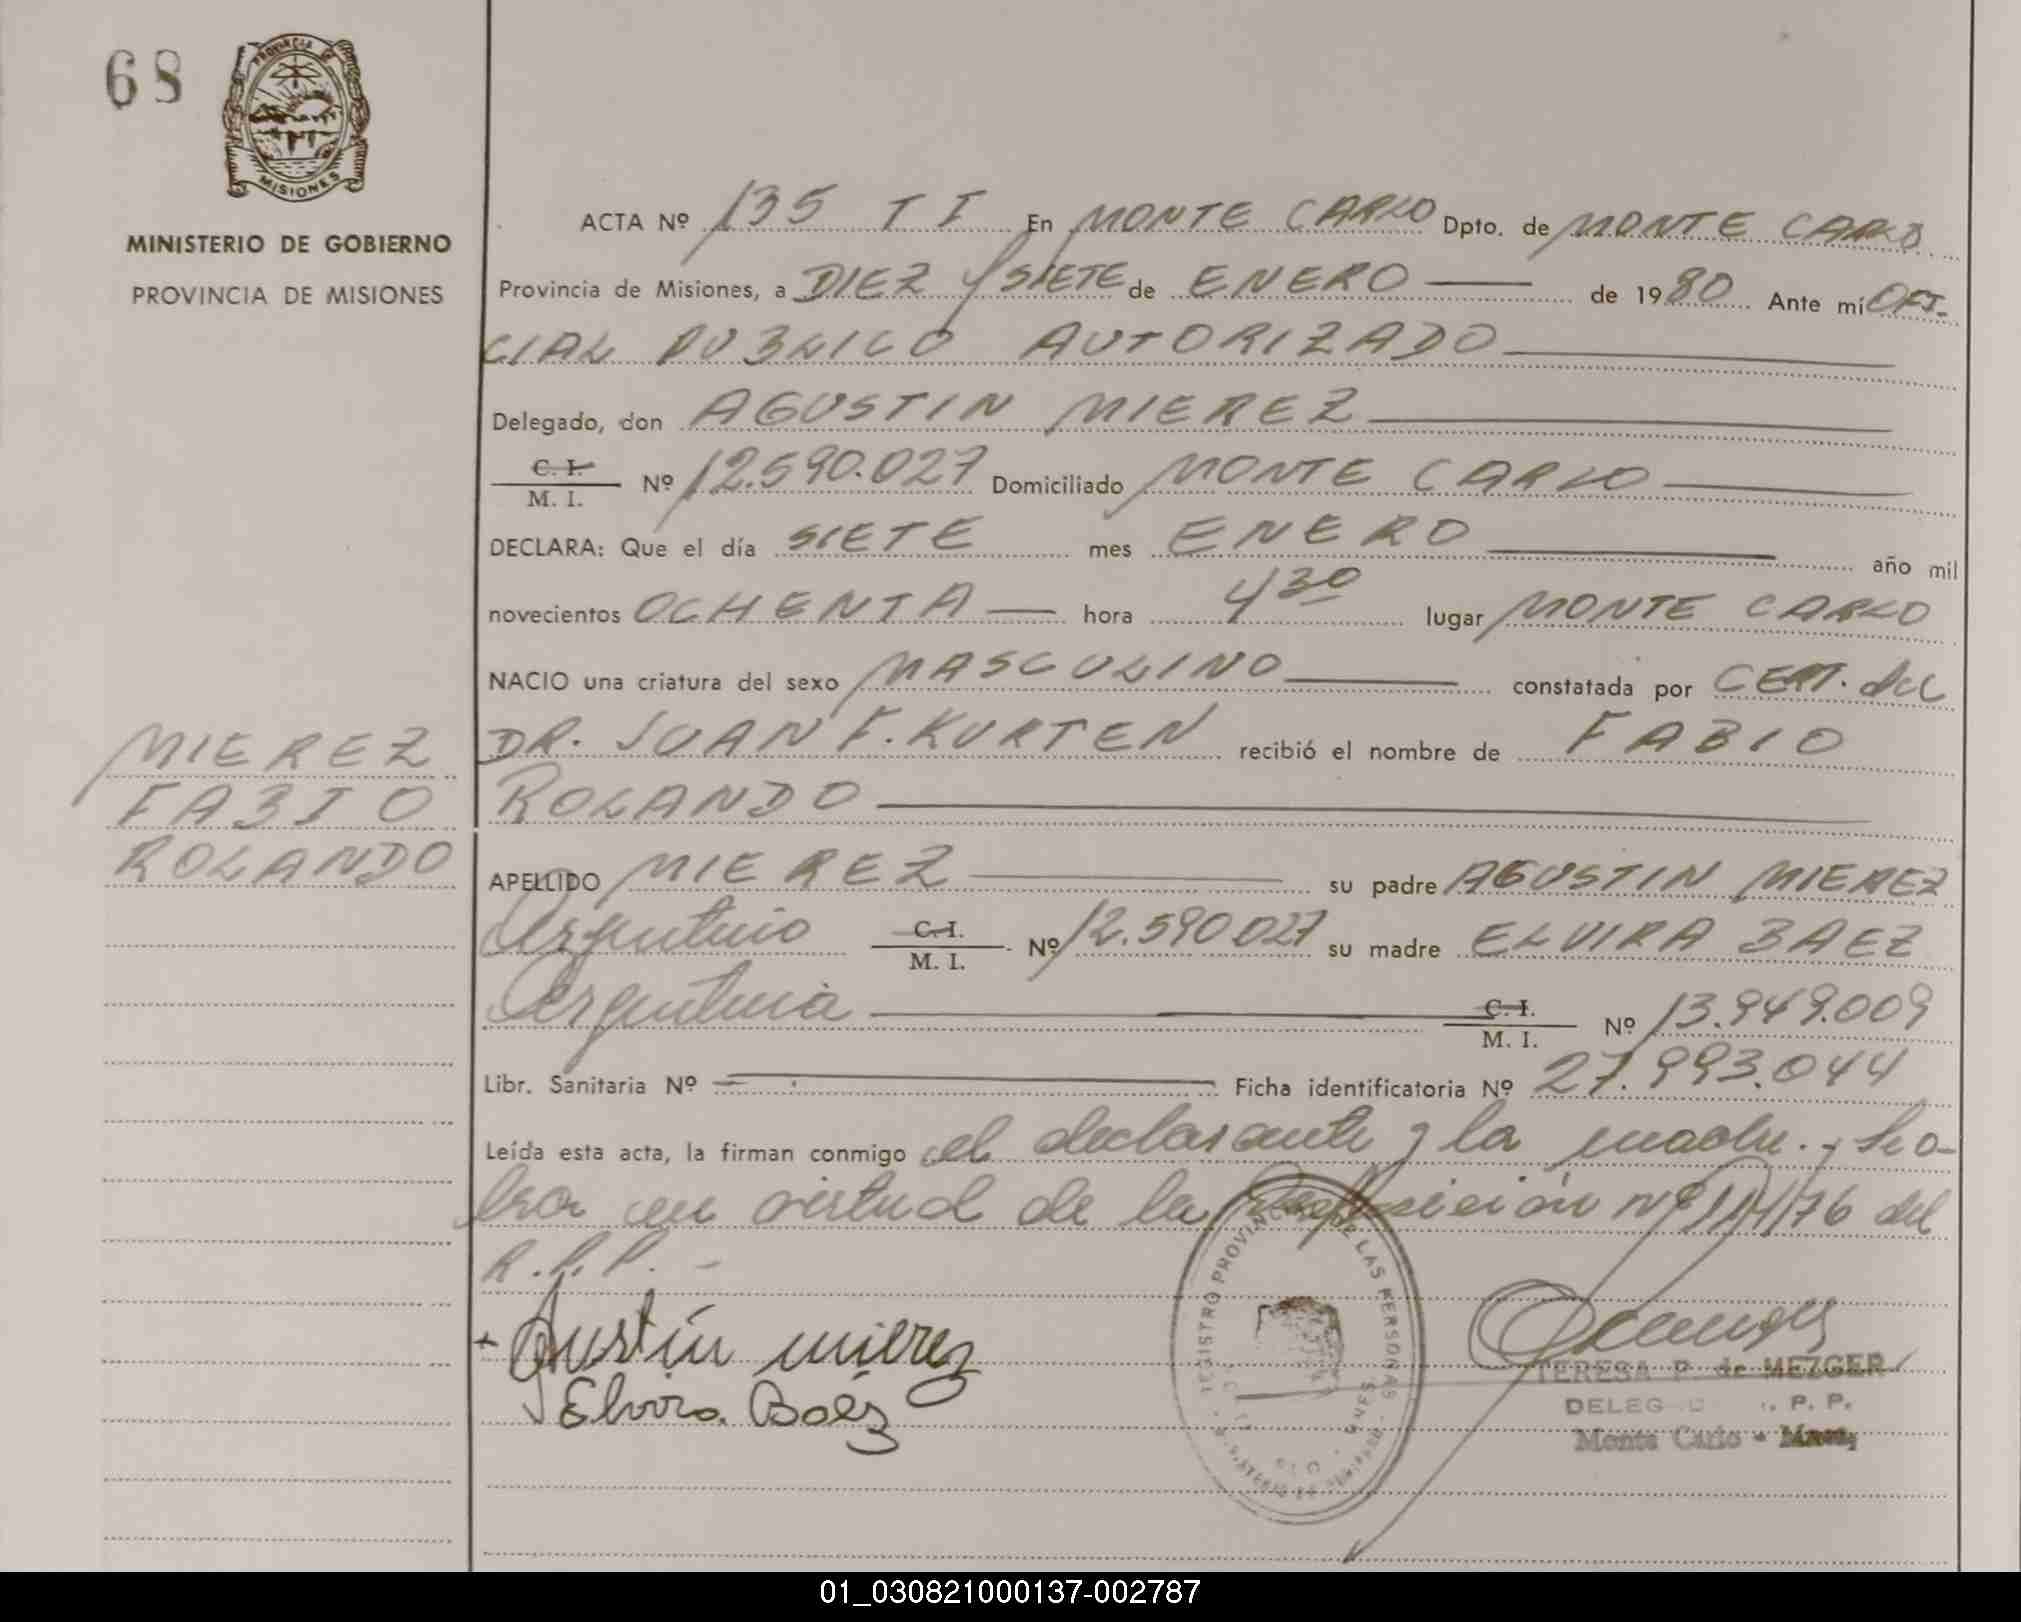 68
PROVINCIA DE
MISIONES
MINISTERIO DE GOBIERNO
PROVINCIA DE MISIONES
ACTA Nº 135 T I En MONTE CARLO Dpto. de MONTE CARLO
Provincia de Misiones, a DIEZ y SIETE de ENERO — de 1980 Ante mí OFI-
CIAL PUBLICO AUTORIZADO
Delegado, don AGUSTIN MIEREZ
C. I.
M. I. Nº 12.590.027 Domiciliado MONTE CARLO
DECLARA: Que el día SIETE mes ENERO año mil
novecientos OCHENTA — hora 4 30 lugar MONTE CARLO
NACIO una criatura del sexo MASCULINO constatada por CERT. del
DR. JUAN F. KURTEN recibió el nombre de FABIO
ROLANDO
MIEREZ
FABIO
ROLANDO
APELLIDO MIEREZ su padre AGUSTIN MIEREZ
Argentino C. I. M. I. Nº 12.590.027 su madre ELVIRA BAEZ
Argentina C. I. M. I. Nº 13.949.009
Libr. Sanitaria Nº — Ficha identificatoria Nº 27.993.044
Leída esta acta, la firman conmigo el declarante y la madre.
en virtud de la Disposición Nº 114/76 del
R.P.P. -
Agustín mierez
Elvira Baéz
REGISTRO PROVINCIAL DE LAS PERSONAS
TERESA P. de MEZGER
P. P.
Monte Carlo - Mnes.
01_030821000137-002787